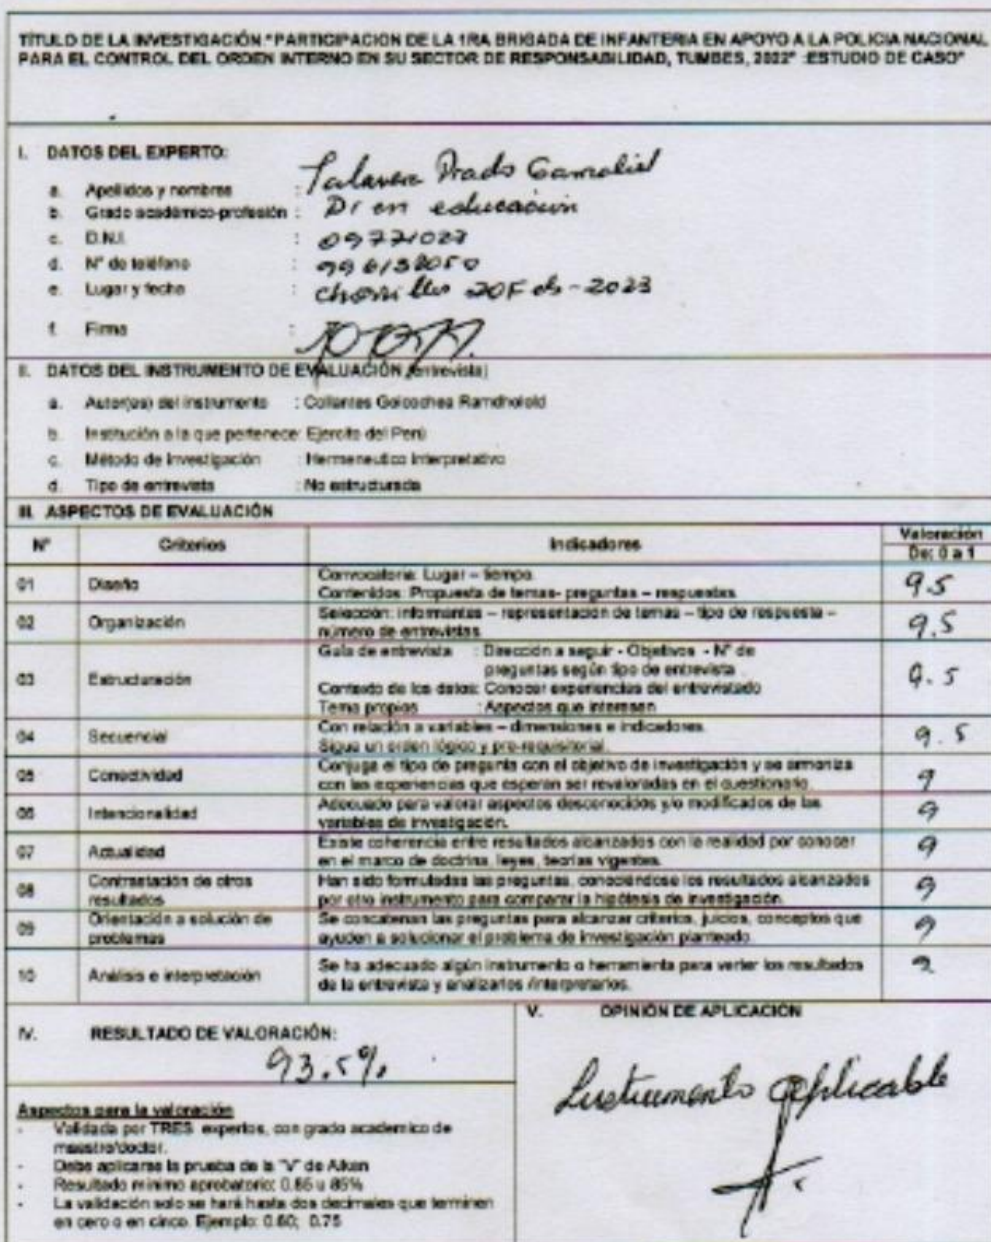 TÍTULO DE LA INVESTIGACIÓN "PARTICIPACION DE LA 1RA BRIGADA DE INFANTERIA EN APOYO A LA POLICIA NACIONAL
PARA EL CONTROL DEL ORDEN INTERNO EN SU SECTOR DE RESPONSABILIDAD, TUMBES, 2022" :ESTUDIO DE CASO"
I. DATOS DEL EXPERTO:
a. Apellidos y nombres : Talavera Prado Gamaliel
b. Grado académico-profesión : Dr en educación
c. D.N.I. :
d. N° de teléfono :
e. Lugar y fecha : Chorrillos 20 Feb-2023
f. Firma :
II. DATOS DEL INSTRUMENTO DE EVALUACIÓN (entrevista)
a. Autor(es) del instrumento : Collantes Goicochea Ramdholold
b. Institución a la que pertenece: Ejercito del Perú
c. Método de investigación : Hermeneutico interpretativo
d. Tipo de entrevista : No estructurada
III. ASPECTOS DE EVALUACIÓN
N° Criterios Indicadores Valoración
De: 0 a 1
01 Diseño Convocatoria: Lugar – tiempo. 9.5
Contenidos: Propuesta de temas- preguntas – respuestas.
02 Organización Selección: informantes – representación de temas – tipo de respuesta – 9.5
número de entrevistas
03 Estructuración Guía de entrevista : Dirección a seguir - Objetivos - N° de 9.5
preguntas según tipo de entrevista .
Contexto de los datos: Conocer experiencias del entrevistado
Tema propios : Aspectos que interesen
04 Secuencial Con relación a variables – dimensiones e indicadores. 9.5
Sigue un orden lógico y pre-requisitorial.
05 Conectividad Conjuga el tipo de pregunta con el objetivo de investigación y se armoniza 9
con las experiencias que esperan ser revaloradas en el cuestionario.
06 Intencionalidad Adecuado para valorar aspectos desconocidos y/o modificados de las 9
variables de investigación.
07 Actualidad Existe coherencia entre resultados alcanzados con la realidad por conocer 9
en el marco de doctrina, leyes, teorías vigentes.
08 Contrastación de otros resultados Han sido formuladas las preguntas, conociéndose los resultados alcanzados 9
por otro instrumento para comparar la hipótesis de investigación.
09 Orientación a solución de problemas Se concatenan las preguntas para alcanzar criterios, juicios, conceptos que 9
ayuden a solucionar el problema de investigación planteado
10 Análisis e interpretación Se ha adecuado algún instrumento o herramienta para verter los resultados 9
de la entrevista y analizarlos /interpretarlos.
IV. RESULTADO DE VALORACIÓN:
93.5%
Aspectos para la valoración
- Validada por TRES expertos, con grado academico de
maestro/doctor.
- Debe aplicarse la prueba de la "V" de Aiken
- Resultado mínimo aprobatorio: 0.85 u 85%
- La validación solo se hará hasta dos decimales que terminen
en cero o en cinco. Ejemplo: 0.60; 0.75
V. OPINIÓN DE APLICACIÓN
Instrumento aplicable